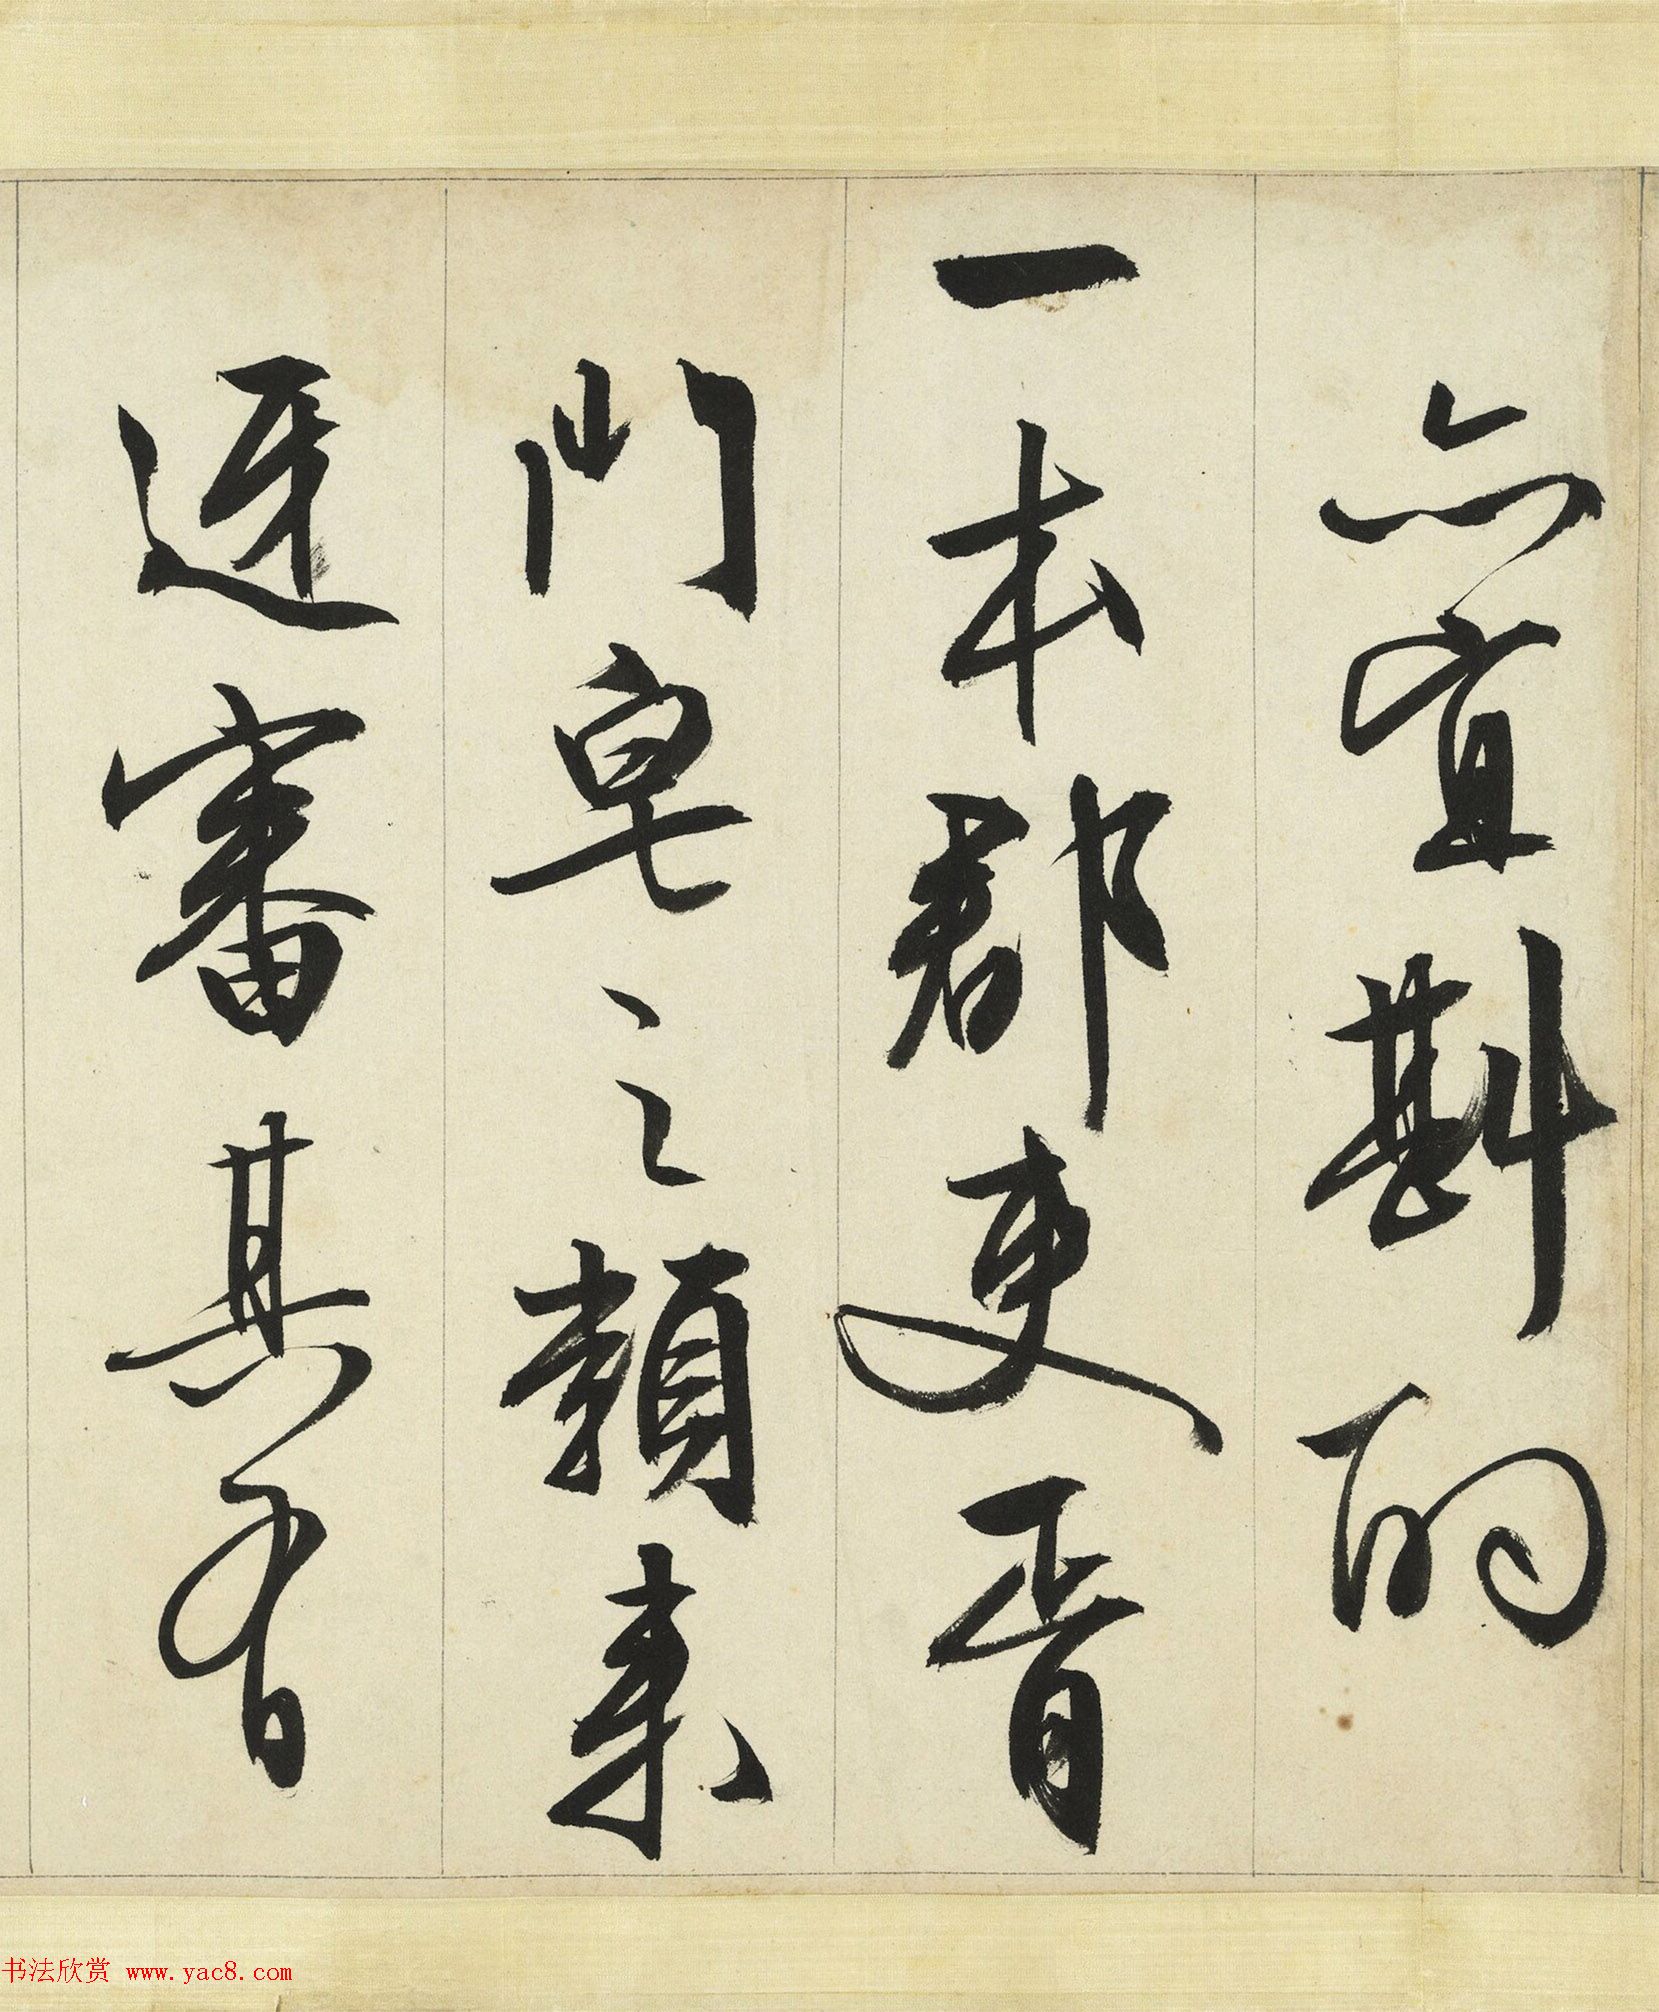 亦宜斟酌
一本郡吏胥
門皁之類来
近審其有
书法欣赏 www.yac8.com